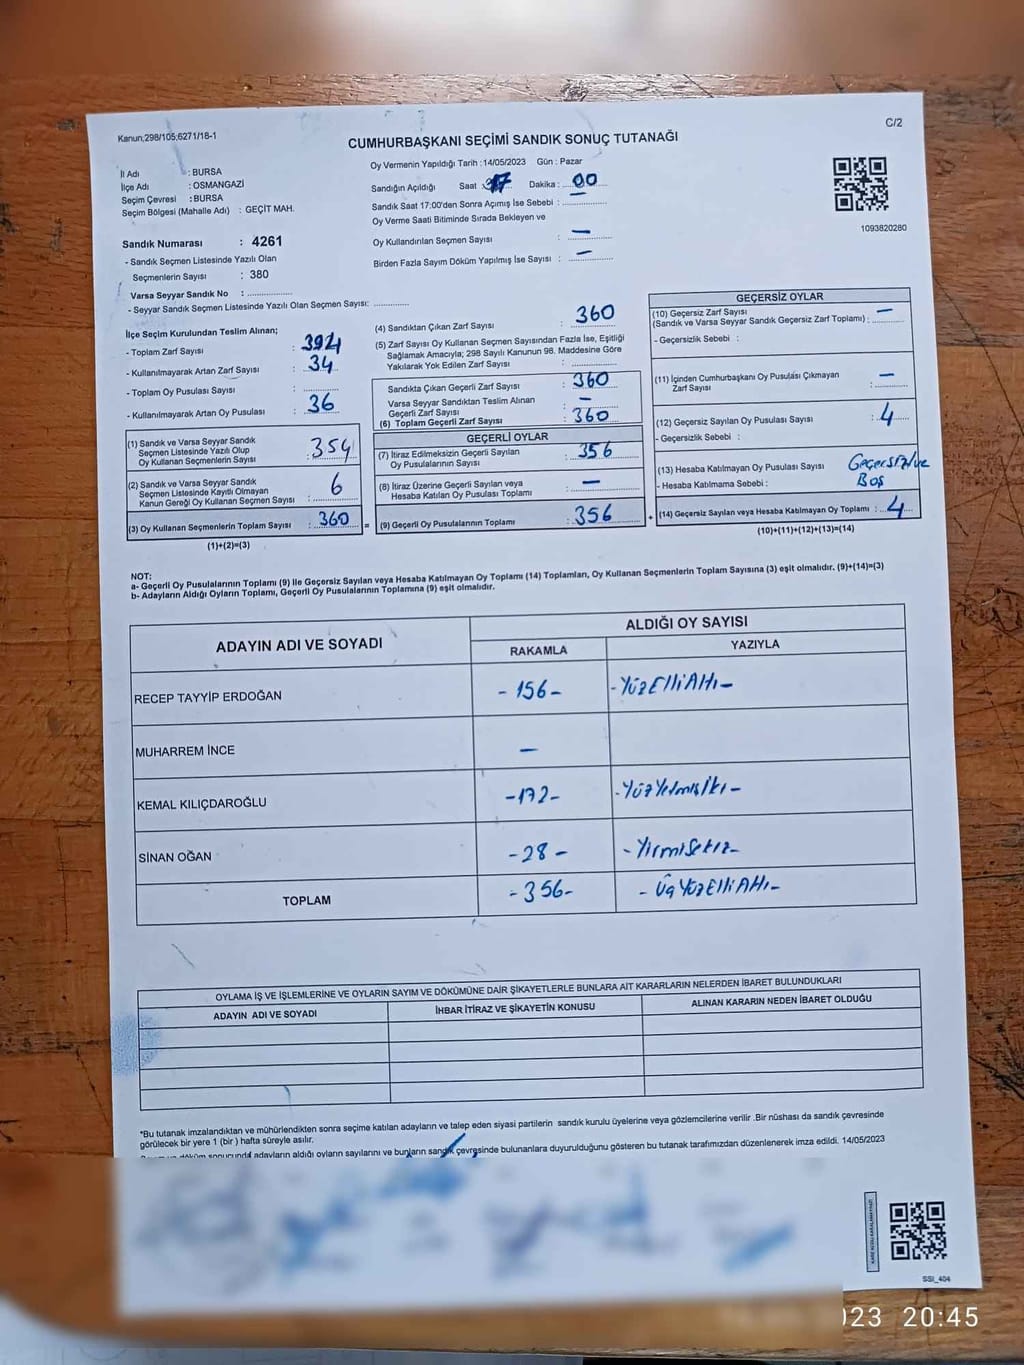 Kanun;298/105;6271/18-1
C/2
CUMHURBAŞKANI SEÇİMİ SANDIK SONUÇ TUTANAĞI
İl Adı : BURSA
İlçe Adı : OSMANGAZİ
Seçim Çevresi : BURSA
Seçim Bölgesi (Mahalle Adı) : GEÇİT MAH.
Oy Vermenin Yapıldığı Tarih :14/05/2023 Gün : Pazar
Sandığın Açıldığı Saat : 17 Dakika : 00
Sandık Saat 17:00'den Sonra Açımış İse Sebebi :
Oy Verme Saati Bitiminde Sırada Bekleyen ve
Oy Kullandırılan Seçmen Sayısı : —
Birden Fazla Sayım Döküm Yapılmış İse Sayısı : —
1093820280
Sandık Numarası : 4261
- Sandık Seçmen Listesinde Yazılı Olan
Seçmenlerin Sayısı : 380
Varsa Seyyar Sandık No :
- Seyyar Sandık Seçmen Listesinde Yazılı Olan Seçmen Sayısı:
İlçe Seçim Kurulundan Teslim Alınan;
- Toplam Zarf Sayısı : 394
- Kullanılmayarak Artan Zarf Sayısı : 34
- Toplam Oy Pusulası Sayısı :
- Kullanılmayarak Artan Oy Pusulası : 36
(1) Sandık ve Varsa Seyyar Sandık
Seçmen Listesinde Yazılı Olup
Oy Kullanan Seçmenlerin Sayısı : 354
(2) Sandık ve Varsa Seyyar Sandık
Seçmen Listesinde Kayıtlı Olmayan
Kanun Gereği Oy Kullanan Seçmen Sayısı : 6
(3) Oy Kullanan Seçmenlerin Toplam Sayısı : 360
(1)+(2)=(3)
=
(4) Sandıktan Çıkan Zarf Sayısı : 360
(5) Zarf Sayısı Oy Kullanan Seçmen Sayısından Fazla İse, Eşitliği
Sağlamak Amacıyla; 298 Sayılı Kanunun 98. Maddesine Göre
Yakılarak Yok Edilen Zarf Sayısı :
Sandıkta Çıkan Geçerli Zarf Sayısı : 360
Varsa Seyyar Sandıktan Teslim Alınan
Geçerli Zarf Sayısı : —
(6) Toplam Geçerli Zarf Sayısı : 360
GEÇERLİ OYLAR
(7) İtiraz Edilmeksizin Geçerli Sayılan
Oy Pusulalarının Sayısı : 356
(8) İtiraz Üzerine Geçerli Sayılan veya
Hesaba Katılan Oy Pusulası Toplamı : —
(9) Geçerli Oy Pusulalarının Toplamı : 356
+
GEÇERSİZ OYLAR
(10) Geçersiz Zarf Sayısı
(Sandık ve Varsa Seyyar Sandık Geçersiz Zarf Toplamı) : —
- Geçersizlik Sebebi :
(11) İçinden Cumhurbaşkanı Oy Pusulası Çıkmayan
Zarf Sayısı : —
(12) Geçersiz Sayılan Oy Pusulası Sayısı : 4
- Geçersizlik Sebebi :
(13) Hesaba Katılmayan Oy Pusulası Sayısı Geçersiz ve
- Hesaba Katılmama Sebebi : Boş
(14) Geçersiz Sayılan veya Hesaba Katılmayan Oy Toplamı : 4
(10)+(11)+(12)+(13)=(14)
NOT:
a- Geçerli Oy Pusulalarının Toplamı (9) ile Geçersiz Sayılan veya Hesaba Katılmayan Oy Toplamı (14) Toplamları, Oy Kullanan Seçmenlerin Toplam Sayısına (3) eşit olmalıdır. (9)+(14)=(3)
b- Adayların Aldığı Oyların Toplamı, Geçerli Oy Pusulalarının Toplamına (9) eşit olmalıdır.
ADAYIN ADI VE SOYADI
ALDIĞI OY SAYISI
RAKAMLA YAZIYLA
RECEP TAYYİP ERDOĞAN - 156 - - Yüz Elli Altı -
MUHARREM İNCE —
KEMAL KILIÇDAROĞLU - 172 - - Yüz Yetmiş İki -
SİNAN OĞAN - 28 - - Yirmi Sekiz -
TOPLAM - 356 - - Üç Yüz Elli Altı -
OYLAMA İŞ VE İŞLEMLERİNE VE OYLARIN SAYIM VE DÖKÜMÜNE DAİR ŞİKAYETLERLE BUNLARA AİT KARARLARIN NELERDEN İBARET BULUNDUKLARI
ADAYIN ADI VE SOYADI İHBAR İTİRAZ VE ŞİKAYETİN KONUSU ALINAN KARARIN NEDEN İBARET OLDUĞU
*Bu tutanak imzalandıktan ve mühürlendikten sonra seçime katılan adayların ve talep eden siyasi partilerin sandık kurulu üyelerine veya gözlemcilerine verilir .Bir nüshası da sandık çevresinde
görülecek bir yere 1 (bir ) hafta süreyle asılır.
sonucunda adayların aldığı oyların sayılarını ve bunların sandık çevresinde bulunanlara duyurulduğunu gösteren bu tutanak tarafımızdan düzenlenerek imza edildi. 14/05/2023
SSI_404
023 20:45